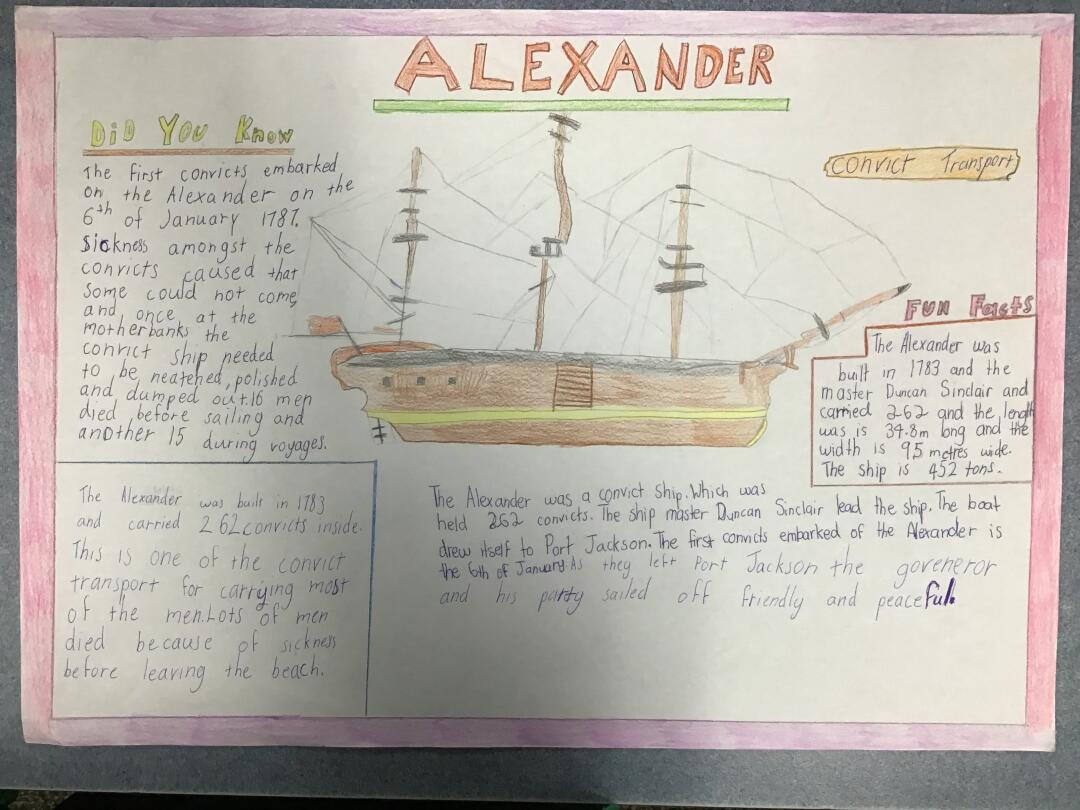 ALEXANDER
DiD You Know
The first convicts embarked
on the Alexander on the
6th of January 1787.
Sickness amongst the
convicts caused that
some could not come,
and once at the
motherbanks the
convict ship needed
to be neatened, polished
and dumped out.16 men
died before sailing and
another 15 during voyages.
Convict Transport
Fun Facts
The Alexander was
built in 1783 and the
master Duncan Sinclair and
carried 262 and the length
was is 34.8m long and the
width is 95 metres wide.
The ship is 452 tons.
The Alexander was built in 1783
and carried 262 convicts inside.
This is one of the convict
transport for carrying most
of the men.Lots of men
died because of sickness
before leaving the beach.
The Alexander was a convict ship. Which was
held 262 convicts. The ship master Duncan Sinclair lead the ship. The boat
drew itself to Port Jackson. The first convicts embarked of the Alexander is
the 6th of January.As they left Port Jackson the goveneror
and his party sailed off friendly and peaceful.